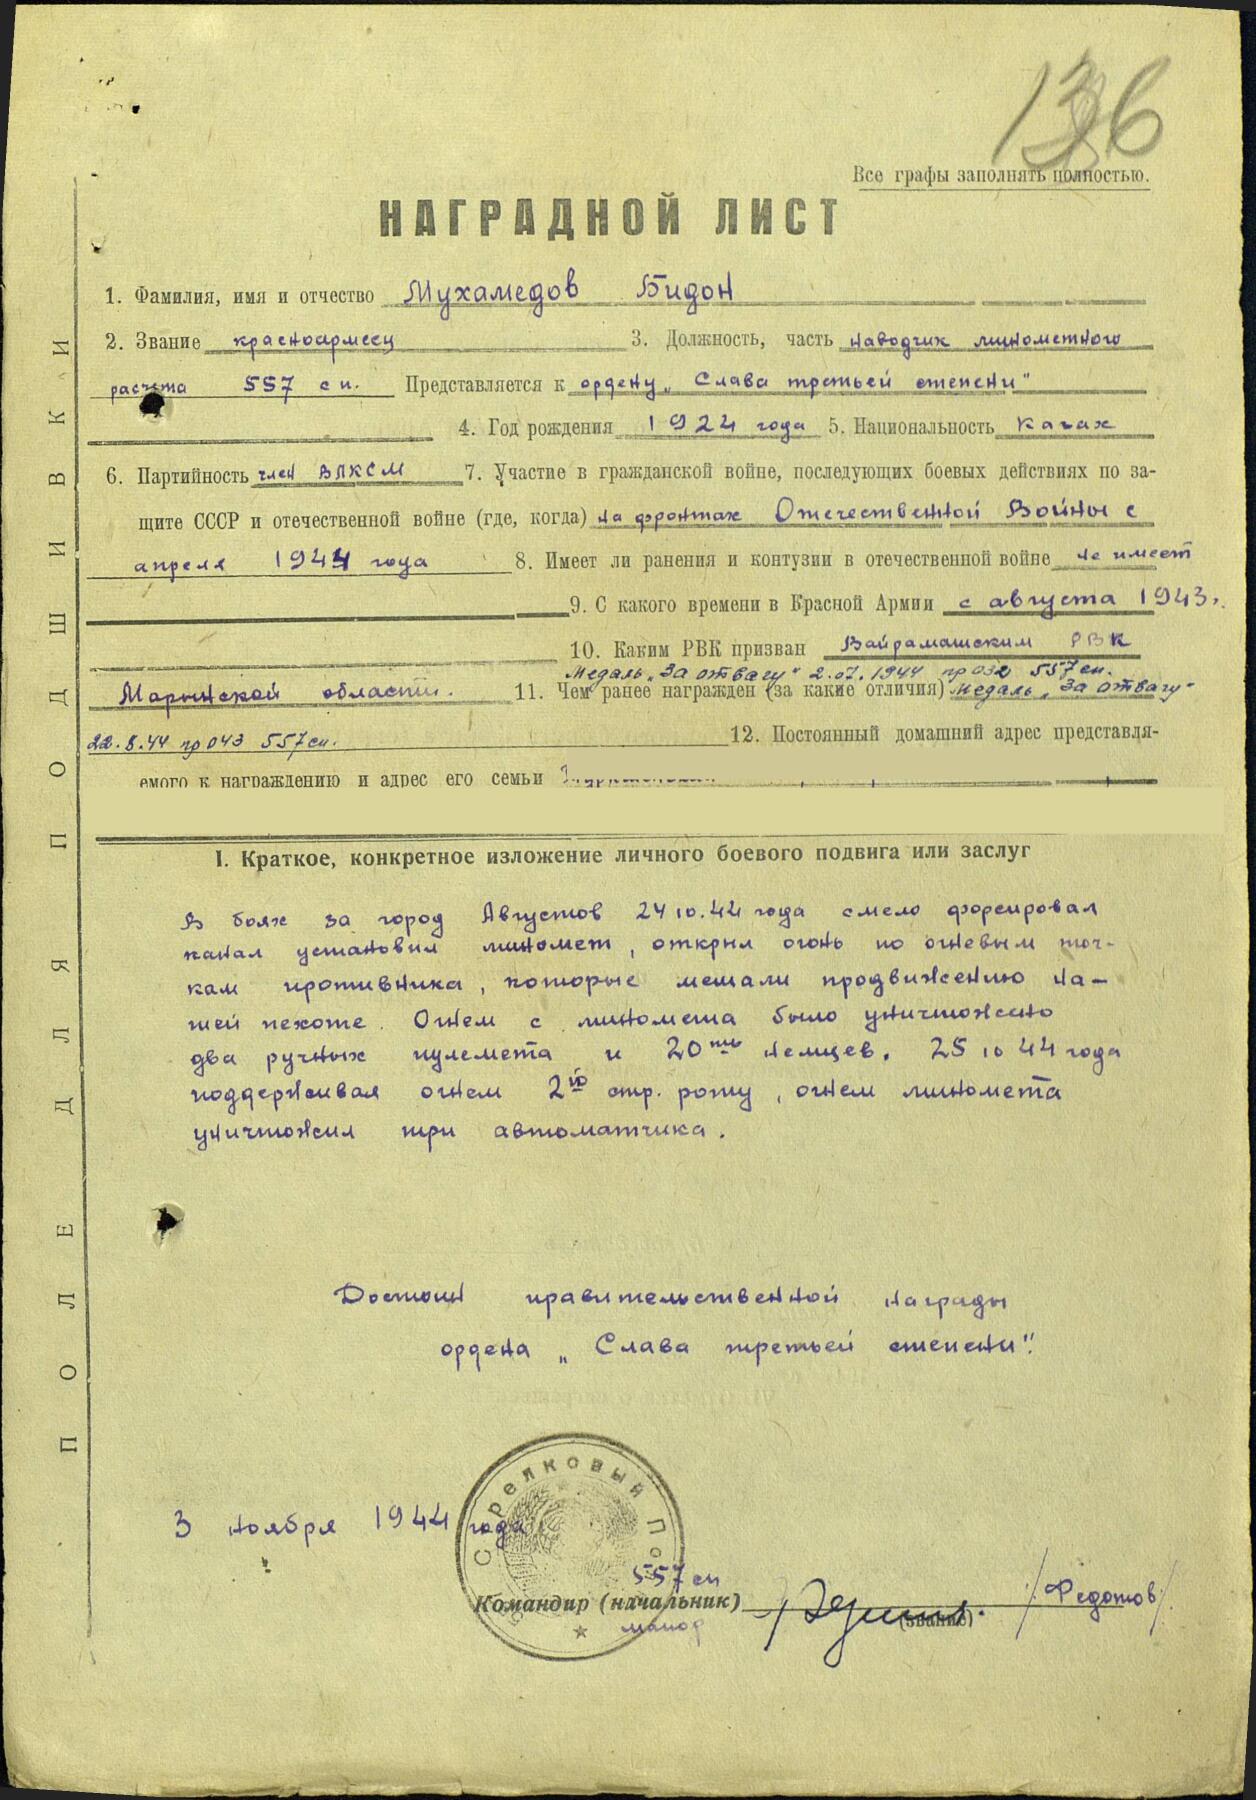 136
Все графы заполнять полностью.
НАГРАДНОЙ ЛИСТ
1. Фамилия, имя и отчество Мухамедов Бидон
2. Звание красноармеец 3. Должность, часть наводчик минометного
расчета 557 сп. Представляется к ордену „Слава третьей степени"
4. Год рождения 1924 года 5. Национальность Казах
6. Партийность член ВЛКСМ 7. Участие в гражданской войне, последующих боевых действиях по за-
щите СССР и отечественной войне (где, когда) на фронтах Отечественной Войны с
апреля 1944 года 8. Имеет ли ранения и контузии в отечественной войне не имеет
9. С какого времени в Красной Армии с августа 1943г.
10. Каким РВК призван Байрамашским РВК
Медаль „За отвагу" 2.07.1944 пр 032 557 сп.
Марыйской области. 11. Чем ранее награжден (за какие отличия) Медаль „За отвагу"
22.8.44 пр 043 557 сп. 12. Постоянный домашний адрес представля-
емого к награждению и адрес его семьи
I. Краткое, конкретное изложение личного боевого подвига или заслуг
В боях за город Августов 24 10.44 года смело форсировал
канал установил миномет, открыл огонь по огневым точ-
кам противника, которые мешали продвижению на-
шей пехоте. Огнем с миномета было уничтожено
два ручных пулемета и 20ть немцев. 25 10 44 года
поддерживая огнем 2ю стр. роту, огнем миномета
уничтожил три автоматчика.
Достоин правительственной награды
ордена „Слава третьей степени".
3 ноября 1944 года
Стрелковый По
557 сп
Командир (начальник) /Федотов/
майор (звание)
ПОЛЕ ДЛЯ ПОДШИВКИ